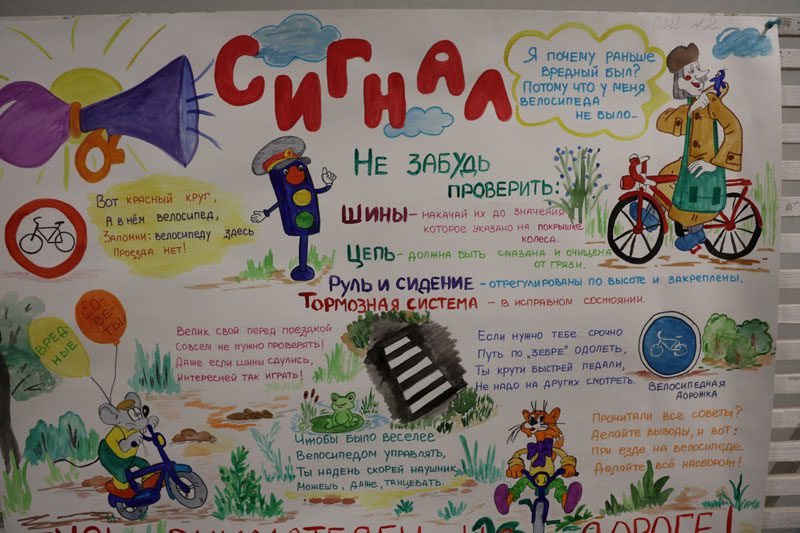 СШ №2
СИГНАЛ
Я почему раньше
вредный был?
Потому что у меня
велосипеда
не было...
Вот красный круг,
А в нём велосипед,
Запомни: велосипеду здесь
Проезда нет!
Не забудь
проверить:
Шины – накачай их до значения,
которое указано на покрышке
колеса.
Цепь – должна быть смазана и очищена
от грязи.
Руль и сидение – отрегулированы по высоте и закреплены.
Тормозная система – в исправном состоянии.
Вредные
Советы
Велик свой перед поездкой
Совсем не нужно проверять!
Даже если шины сдулись,
Интересней так играть!
Если нужно тебе срочно
Путь по „зебре" одолеть,
Ты крути быстрей педали,
Не надо на других смотреть.
Велосипедная
дорожка
Чтобы было веселее
Велосипедом управлять,
Ты надень скорей наушник
Можешь, даже, танцевать.
Прочитали все советы?
Делайте выводы, и вот:
При езде на велосипеде
Делайте всё наоборот!
дороге!